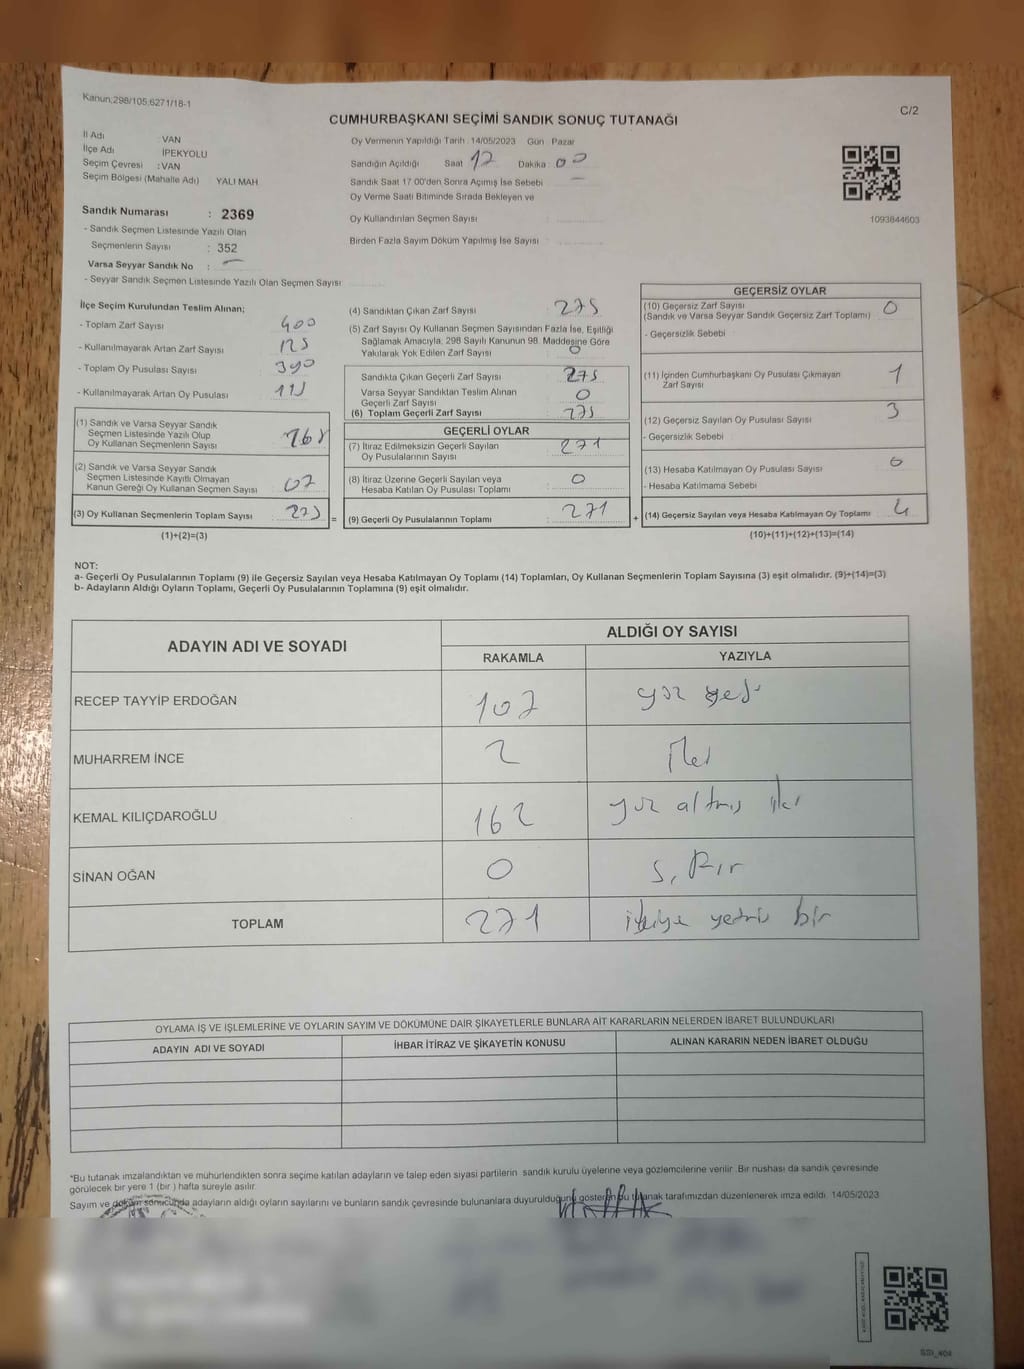 Kanun;298/105,6271/18-1
C/2
CUMHURBAŞKANI SEÇİMİ SANDIK SONUÇ TUTANAĞI
İl Adı : VAN
İlçe Adı : İPEKYOLU
Seçim Çevresi : VAN
Seçim Bölgesi (Mahalle Adı) YALI MAH
Oy Vermenin Yapıldığı Tarih 14/05/2023 Gün Pazar
Sandığın Açıldığı Saat 17 Dakika 00
Sandık Saat 17:00'den Sonra Açımış İse Sebebi —
Oy Verme Saati Bitiminde Sırada Bekleyen ve
Oy Kullandırılan Seçmen Sayısı :
Birden Fazla Sayım Döküm Yapılmış İse Sayısı :
1093844603
Sandık Numarası : 2369
- Sandık Seçmen Listesinde Yazılı Olan
Seçmenlerin Sayısı : 352
Varsa Seyyar Sandık No : —
- Seyyar Sandık Seçmen Listesinde Yazılı Olan Seçmen Sayısı
İlçe Seçim Kurulundan Teslim Alınan;
- Toplam Zarf Sayısı 400
- Kullanılmayarak Artan Zarf Sayısı 125
- Toplam Oy Pusulası Sayısı 390
- Kullanılmayarak Artan Oy Pusulası
(1) Sandık ve Varsa Seyyar Sandık
Seçmen Listesinde Yazılı Olup
Oy Kullanan Seçmenlerin Sayısı
(2) Sandık ve Varsa Seyyar Sandık
Seçmen Listesinde Kayıtlı Olmayan
Kanun Gereği Oy Kullanan Seçmen Sayısı 07
(3) Oy Kullanan Seçmenlerin Toplam Sayısı 275 =
(1)+(2)=(3)
(4) Sandıktan Çıkan Zarf Sayısı 275
(5) Zarf Sayısı Oy Kullanan Seçmen Sayısından Fazla İse, Eşitliği
Sağlamak Amacıyla, 298 Sayılı Kanunun 98. Maddesine Göre
Yakılarak Yok Edilen Zarf Sayısı 0
Sandıkta Çıkan Geçerli Zarf Sayısı 275
Varsa Seyyar Sandıktan Teslim Alınan
Geçerli Zarf Sayısı 0
(6) Toplam Geçerli Zarf Sayısı 275
GEÇERLİ OYLAR
(7) İtiraz Edilmeksizin Geçerli Sayılan
Oy Pusulalarının Sayısı 271
(8) İtiraz Üzerine Geçerli Sayılan veya
Hesaba Katılan Oy Pusulası Toplamı 0
(9) Geçerli Oy Pusulalarının Toplamı 271 +
GEÇERSİZ OYLAR
(10) Geçersiz Zarf Sayısı 0
(Sandık ve Varsa Seyyar Sandık Geçersiz Zarf Toplamı)
- Geçersizlik Sebebi
(11) İçinden Cumhurbaşkanı Oy Pusulası Çıkmayan
Zarf Sayısı 1
(12) Geçersiz Sayılan Oy Pusulası Sayısı 3
- Geçersizlik Sebebi
(13) Hesaba Katılmayan Oy Pusulası Sayısı 0
- Hesaba Katılmama Sebebi
(14) Geçersiz Sayılan veya Hesaba Katılmayan Oy Toplamı 4
(10)+(11)+(12)+(13)=(14)
NOT:
a- Geçerli Oy Pusulalarının Toplamı (9) ile Geçersiz Sayılan veya Hesaba Katılmayan Oy Toplamı (14) Toplamları, Oy Kullanan Seçmenlerin Toplam Sayısına (3) eşit olmalıdır. (9)+(14)=(3)
b- Adayların Aldığı Oyların Toplamı, Geçerli Oy Pusulalarının Toplamına (9) eşit olmalıdır.
ADAYIN ADI VE SOYADI ALDIĞI OY SAYISI
RAKAMLA YAZIYLA
RECEP TAYYİP ERDOĞAN 107 yüz yedi
MUHARREM İNCE 2 İki
KEMAL KILIÇDAROĞLU 162 yüz altmış iki
SİNAN OĞAN 0 sıfır
TOPLAM 271 ikiyüz yetmiş bir
OYLAMA İŞ VE İŞLEMLERİNE VE OYLARIN SAYIM VE DÖKÜMÜNE DAİR ŞİKAYETLERLE BUNLARA AİT KARARLARIN NELERDEN İBARET BULUNDUKLARI
ADAYIN ADI VE SOYADI İHBAR İTİRAZ VE ŞİKAYETİN KONUSU ALINAN KARARIN NEDEN İBARET OLDUĞU
*Bu tutanak imzalandıktan ve mühürlendikten sonra seçime katılan adayların ve talep eden siyasi partilerin sandık kurulu üyelerine veya gözlemcilerine verilir. Bir nushası da sandık çevresinde
görülecek bir yere 1 (bir) hafta süreyle asılır.
Sayım ve döküm sonucunda adayların aldığı oyların sayılarını ve bunların sandık çevresinde bulunanlara duyurulduğunu gösteren bu tutanak tarafımızdan düzenlenerek imza edildi. 14/05/2023